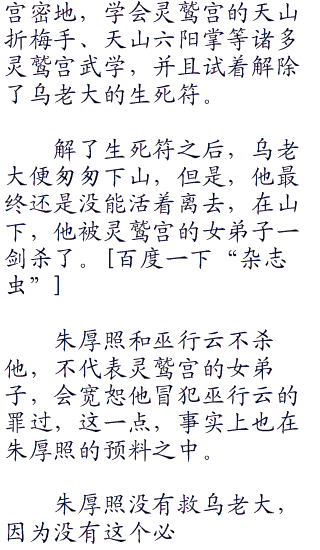 宫密地，学会灵鹫宫的天山
折梅手、天山六阳掌等诸多
灵鹫宫武学，并且试着解除
了乌老大的生死符。
解了生死符之后，乌老
大便匆匆下山，但是，他最
终还是没能活着离去，在山
下，他被灵鹫宫的女弟子一
剑杀了。[百度一下“杂志
虫”]
朱厚照和巫行云不杀
他，不代表灵鹫宫的女弟
子，会宽恕他冒犯巫行云的
罪过，这一点，事实上也在
朱厚照的预料之中。
朱厚照没有救乌老大，
因为没有这个必